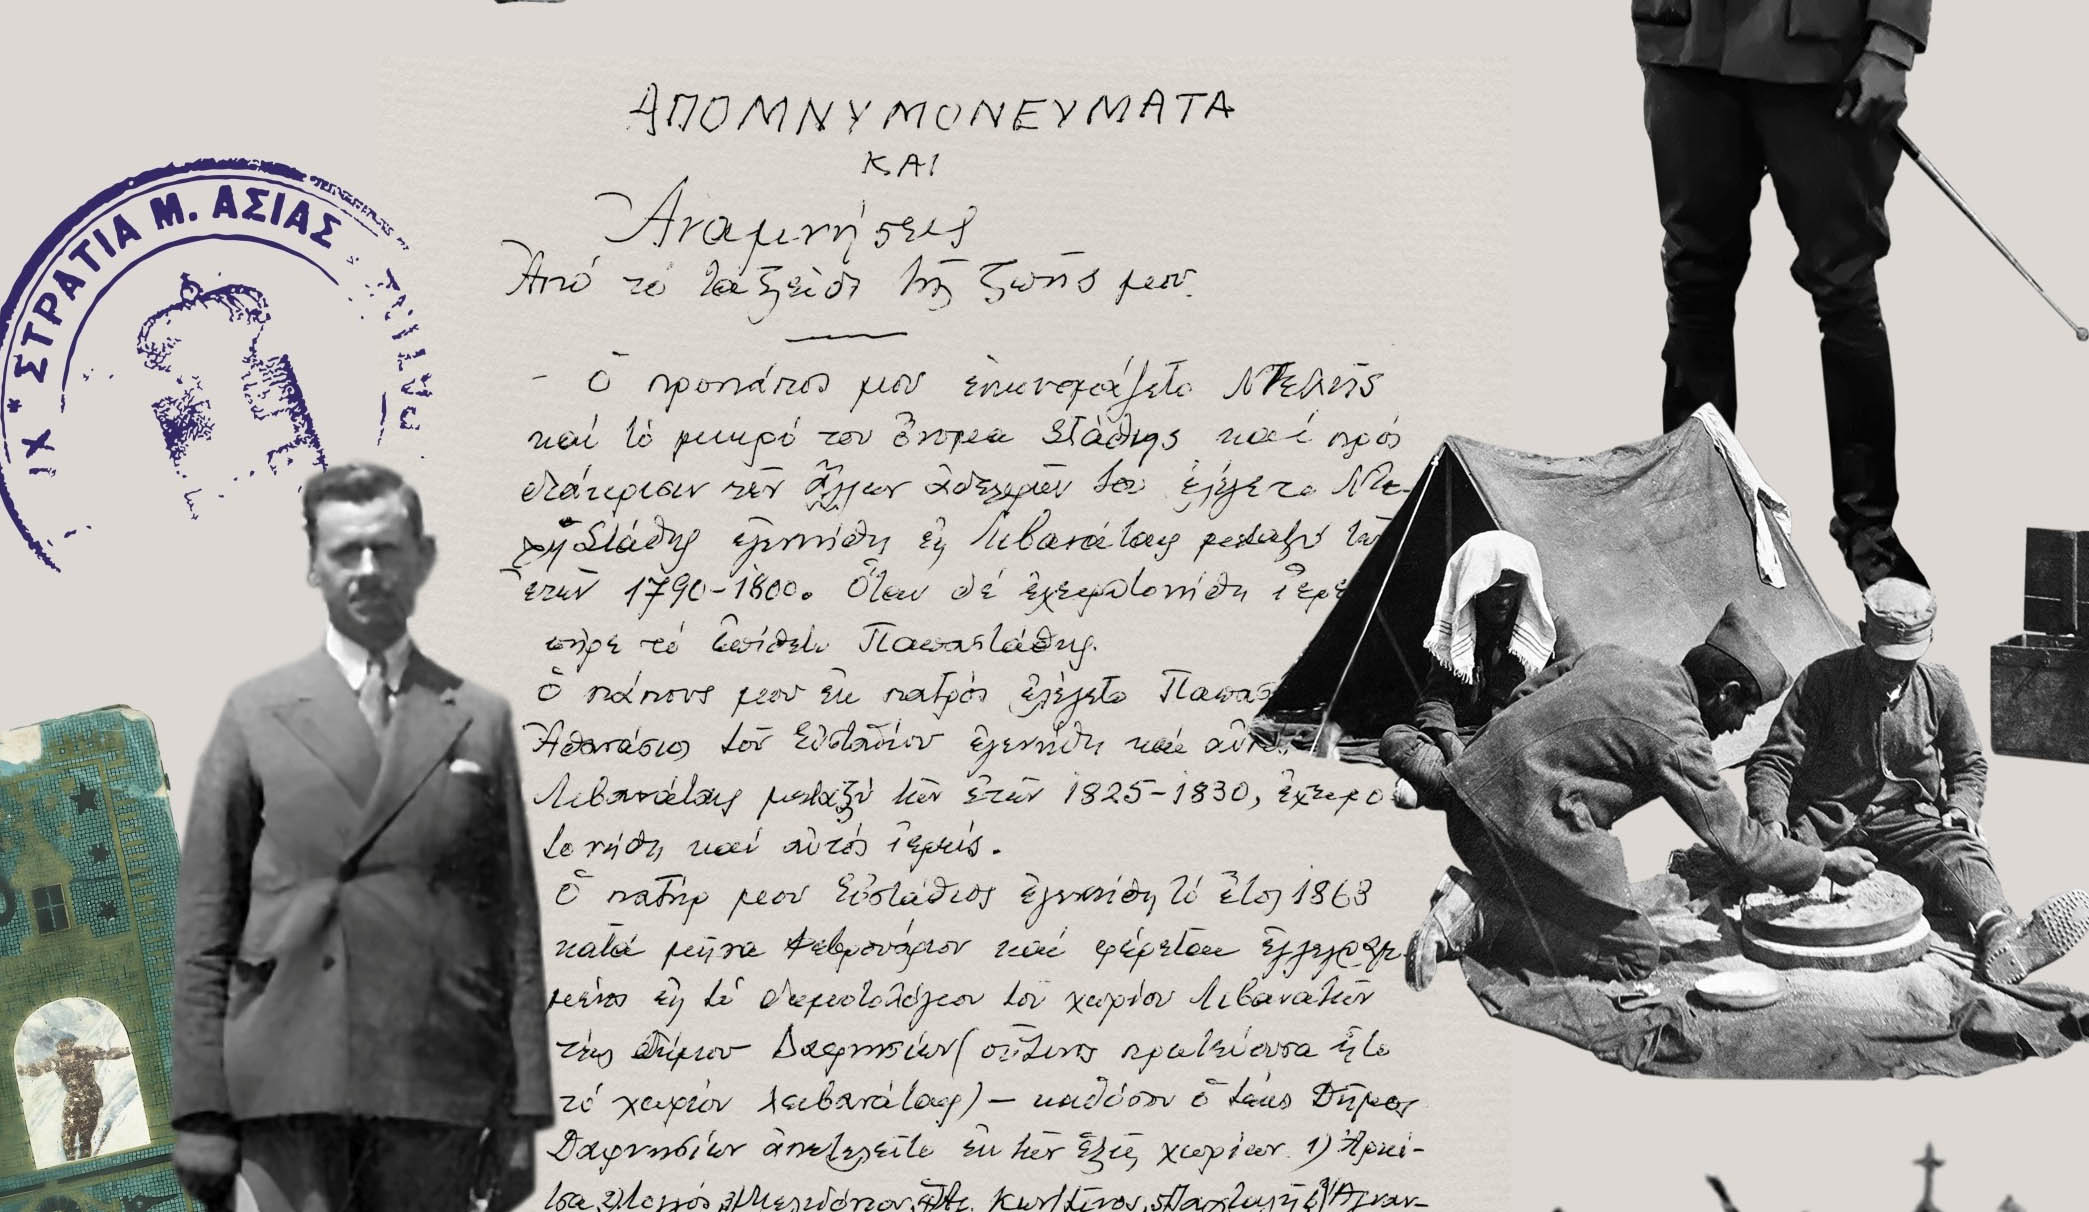 ΙΧ * ΣΤΡΑΤΙΑ Μ. ΑΣΙΑΣ
ΑΠΟΜΝΥΜΟΝΕΥΜΑΤΑ
ΚΑΙ
Ἀναμνήσεις
Ἀπό τό ταξείδι τῆς ζωῆς μου.
- Ὁ προπάπος μου ἐπωνομάζετο Ντελῆς
καί τό μικρό του ὄνομα Στάθης καί πρός
διάκρισιν τῶν ἄλλων ἀδελφῶν του ἐλέγετο Ντε-
λῆ Στάθης ἐγεννήθη εἰς Λιβανάτας μεταξύ τῶν
ἐτῶν 1790-1800. Ὅταν δέ ἐχειροτονήθη
πῆρε τό ἐπίθετο Παπαστάθης.
Ὁ πάπους μου ἐκ πατρός ἐλέγετο
Ἀθανάσιος τοῦ Εὐσταθίου ἐγεννήθη καί
Λιβανάτας μεταξύ τῶν ἐτῶν 1825-1830, ἐχειρο
τονήθη καί αὐτός ἱερεύς.
Ὁ πατήρ μου Εὐστάθιος ἐγεννήθη τό ἔτος 1863
κατά μῆνα Φεβρουάριον καί φέρεται ἐγγεγραμ-
μένος εἰς τό δημοτολόγιον τοῦ χωρίου Λιβανατῶν
τέως Δήμου Δαφνησίων (οὗτινος πρωτεύουσα ἦτο
τό χωρίον Λειβανάτας) - καθόσον ὁ τέως Δῆμος
Δαφνησίων ἀπετελεῖτο ἐκ τῶν ἑξῆς χωρίων 1) Ἀρκί-
τσα,